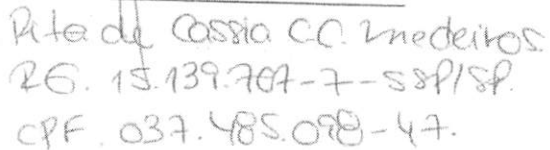 Rita de Cassia C.C. Medeiros.
RG. 15.139.707-7-SSP/SP.
CPF. 037.485.098-47.